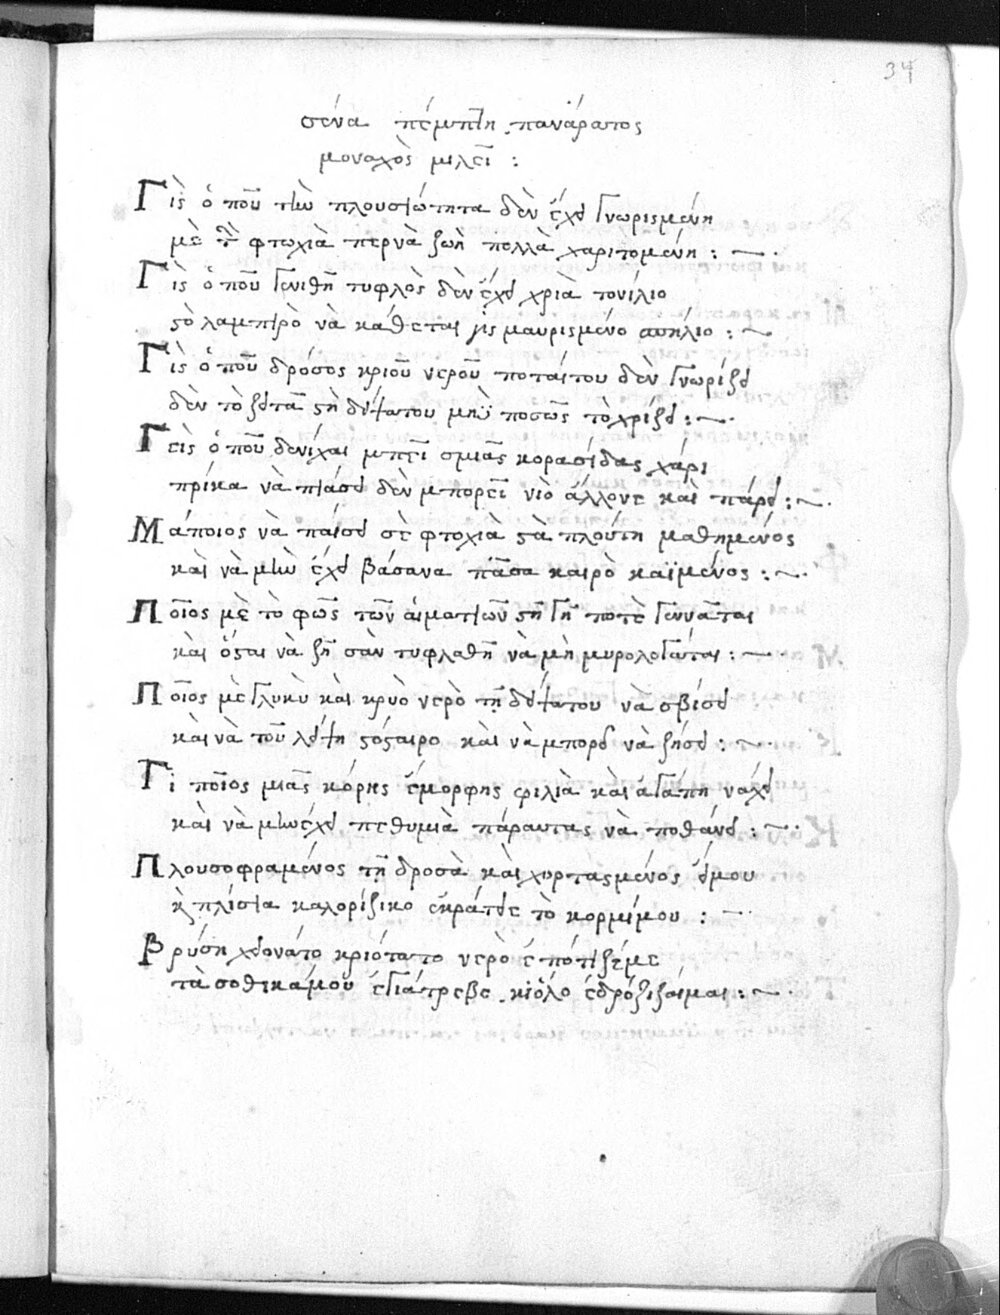 34
σένα πέμπτη πανάρατος
μοναχὸς μιλεῖ :
Γὶς ὁ ποῦ τὴν πλουσιότητα δὲν ἔχει γνωρισμένη
μὲ τὴ φτωχιὰ περνὰ ζωὴ πολλὰ χαριτομένη : ~
Γὶς ὁ ποῦ γενιθῆ τυφλὸς δὲν ἔχει χριὰ τονίλιο
στὸ λαμπιρὸ νὰ κάθεται γὶς μαυρισμένο ανήλιο : ~
Γὶς ὁ ποῦ δρόσος κριοῦ νεροῦ ποταίτου δὲν γνωρίζει
δὲν τὸ ζειτᾶ στὴ δίψατου μηδὲ ποσῶς τὸ χρίζει : ~
Γεὶς ὁ ποῦ δενίχαι μπεῖ σμιᾶς κορασίδας χάρι
πρίκα νὰ πιάσει δὲν μπορεῖ νιὸ άλλονε καὶ πάρει : ~
Μά ποιος νὰ παίσει σὲ φτοχιὰ στὰ πλούτη μαθημένος
καὶ νὰ μὴν ἔχει βάσανα πᾶσα καιρὸ καϊμένος : ~
Ποῖος μὲ τὸ φῶς τῶν ἀιματιῶν στῆ γῆ ποτὲ γεννᾶται
καὶ ὅσται νὰ ζῆ σὰν τυφλαθῆ νὰ μὴ μυρολογᾶται : ~
Ποῖος μὲ γλυκὺ καὶ κρυὸ νερὸ τῆ δείψατου νὰ σβίσει
καὶ νὰ τοῦ λείψη στόσταιρο καὶ νὰ μπορεῖ νὰ ζήσει : ~
Γὶ ποῖος μιᾶς κόρης ἔμορφης φιλιὰ καὶ ἀγάπη νάχει
καὶ νὰ μὴν έχει πεθυμιὰ πάραυτας νὰ ποθάνει : ~
Πλουσοφραμένος τῆ δροσὰ καὶ χορτασμένος ἤμου
κ πλίσια καλορίζικο εκράτειε τὸ κορμίμου :
Βρύση χιονάτο κριότατο νερὸ ἐπότιζέμε
τὰ σοθικάμου ἐγιάτρεβε κιόλο ἐδρόζιζαίμαι : ~